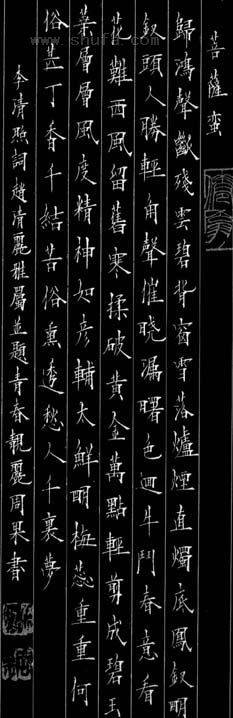 菩薩蠻
歸鴻聲斷殘雲碧背窗雪落爐煙直燭底鳳釵明
釵頭人勝輕角聲催曉漏曙色迴牛鬥春意看
花難西風留舊寒揉破黃金萬點輕剪成碧玉
葉層層風度精神如彥輔太鮮明梅蕊重重何
俗甚丁香千結苦俗熏透愁人千裏夢
李清照詞趙清麗雅屬並題青春靚麗周果書